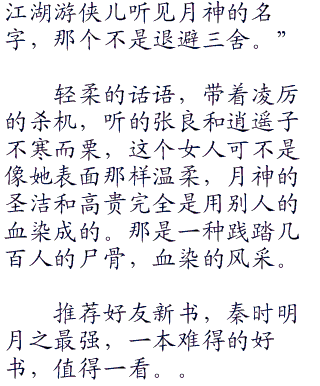 江湖游侠儿听见月神的名
字，那个不是退避三舍。”
轻柔的话语，带着凌厉
的杀机，听的张良和逍遥子
不寒而栗，这个女人可不是
像她表面那样温柔，月神的
圣洁和高贵完全是用别人的
血染成的。那是一种践踏几
百人的尸骨，血染的风采。
推荐好友新书，秦时明
月之最强，一本难得的好
书，值得一看。。